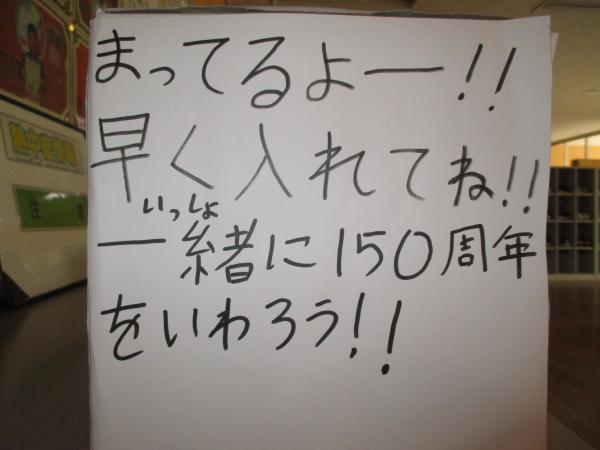 まってるよー!!
早く入れてね!!
いっしょ
一緒に150周年
をいわろう!!
熱中症情報
注